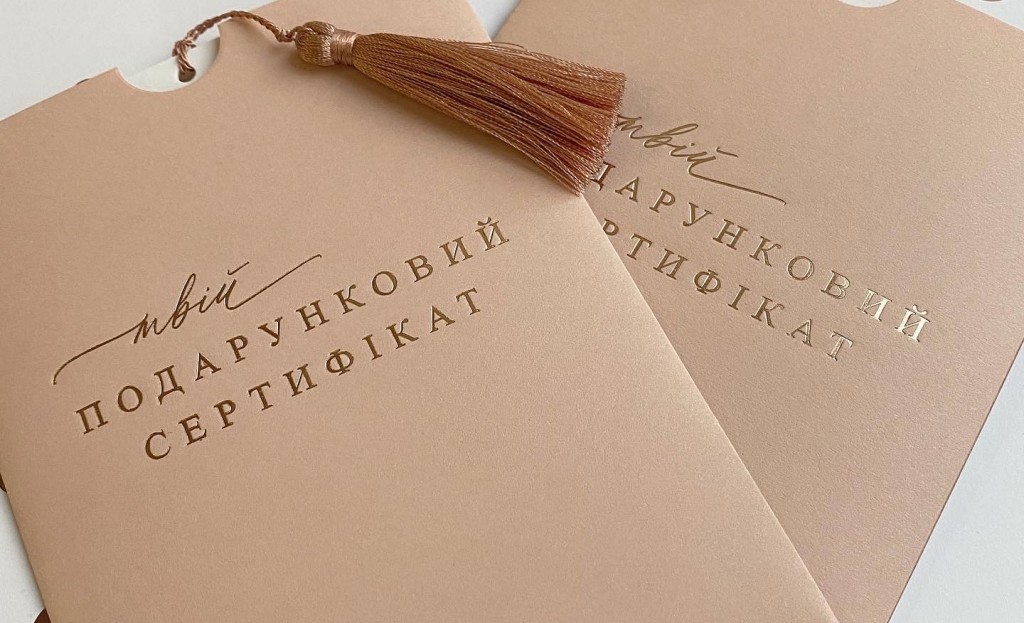 твій
ПОДАРУНКОВИЙ
СЕРТИФІКАТ
твій
ДАРУНКОВИЙ
РТИФІКАТ